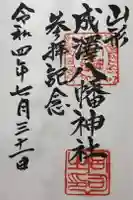 山形
成澤八幡神社
参拝記念
令和四年七月三十一日